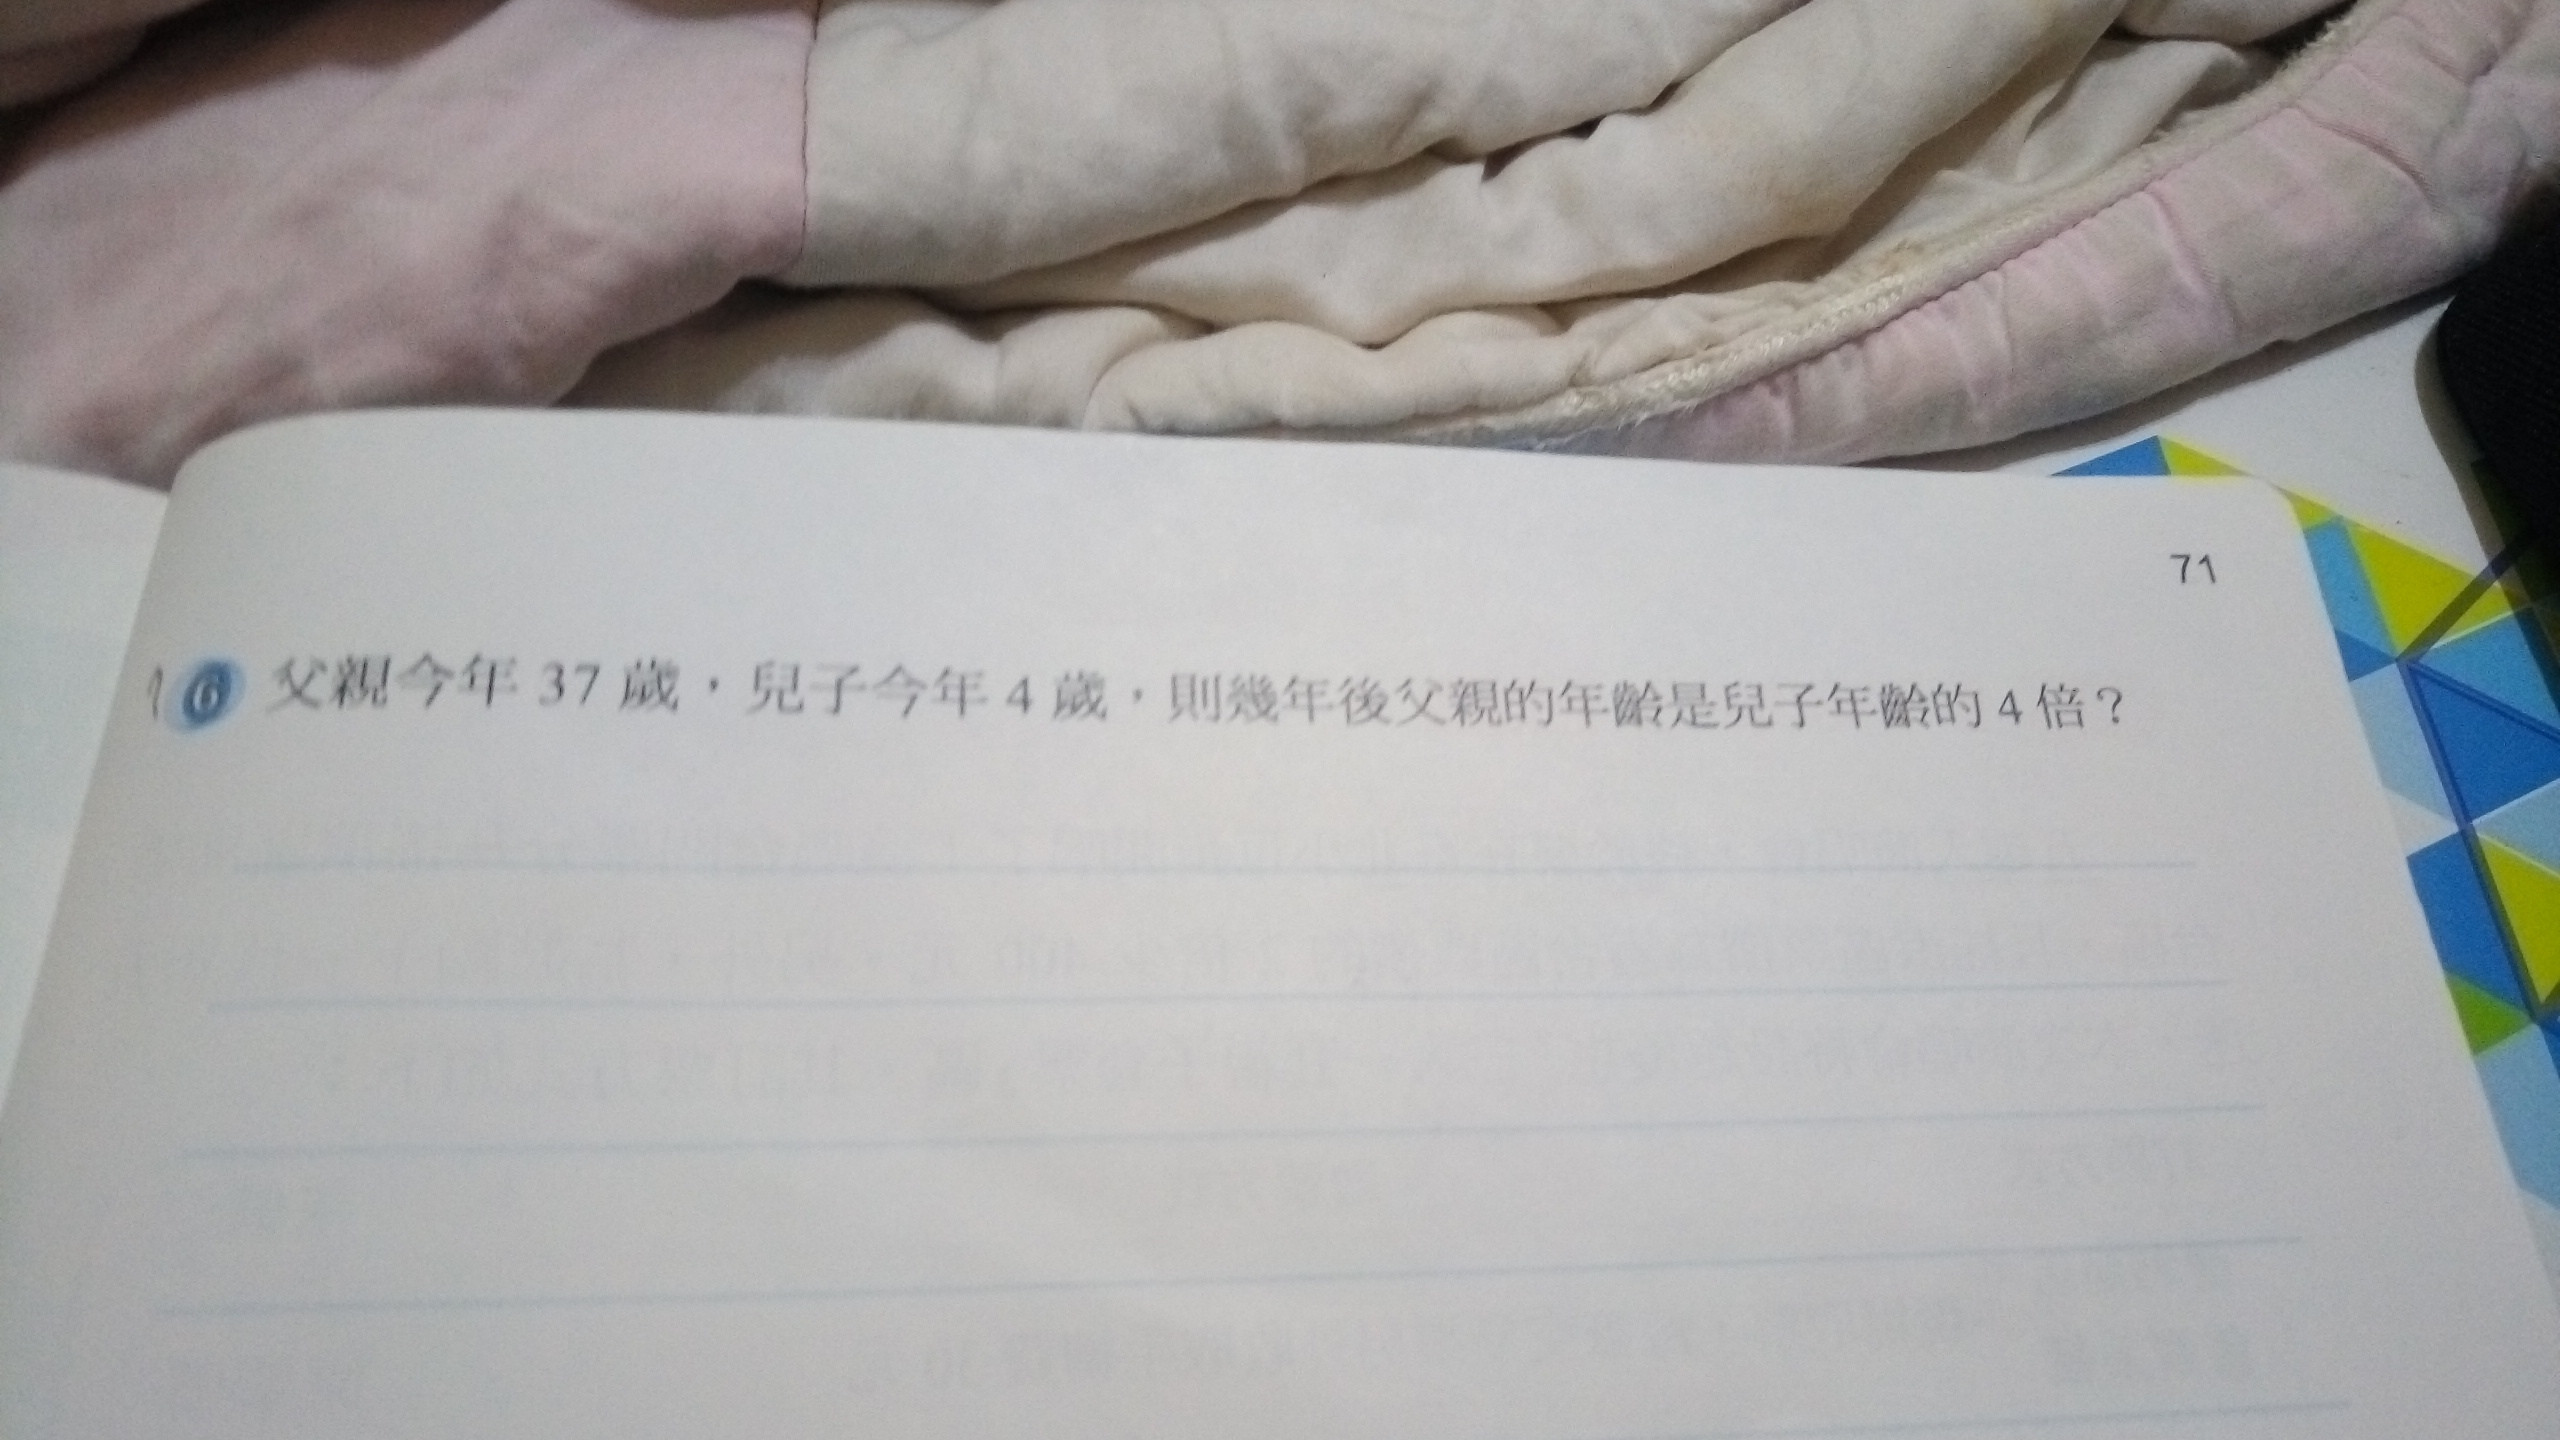 71
6 父親今年 37 歲，兒子今年 4 歲，則幾年後父親的年齡是兒子年齡的 4 倍？